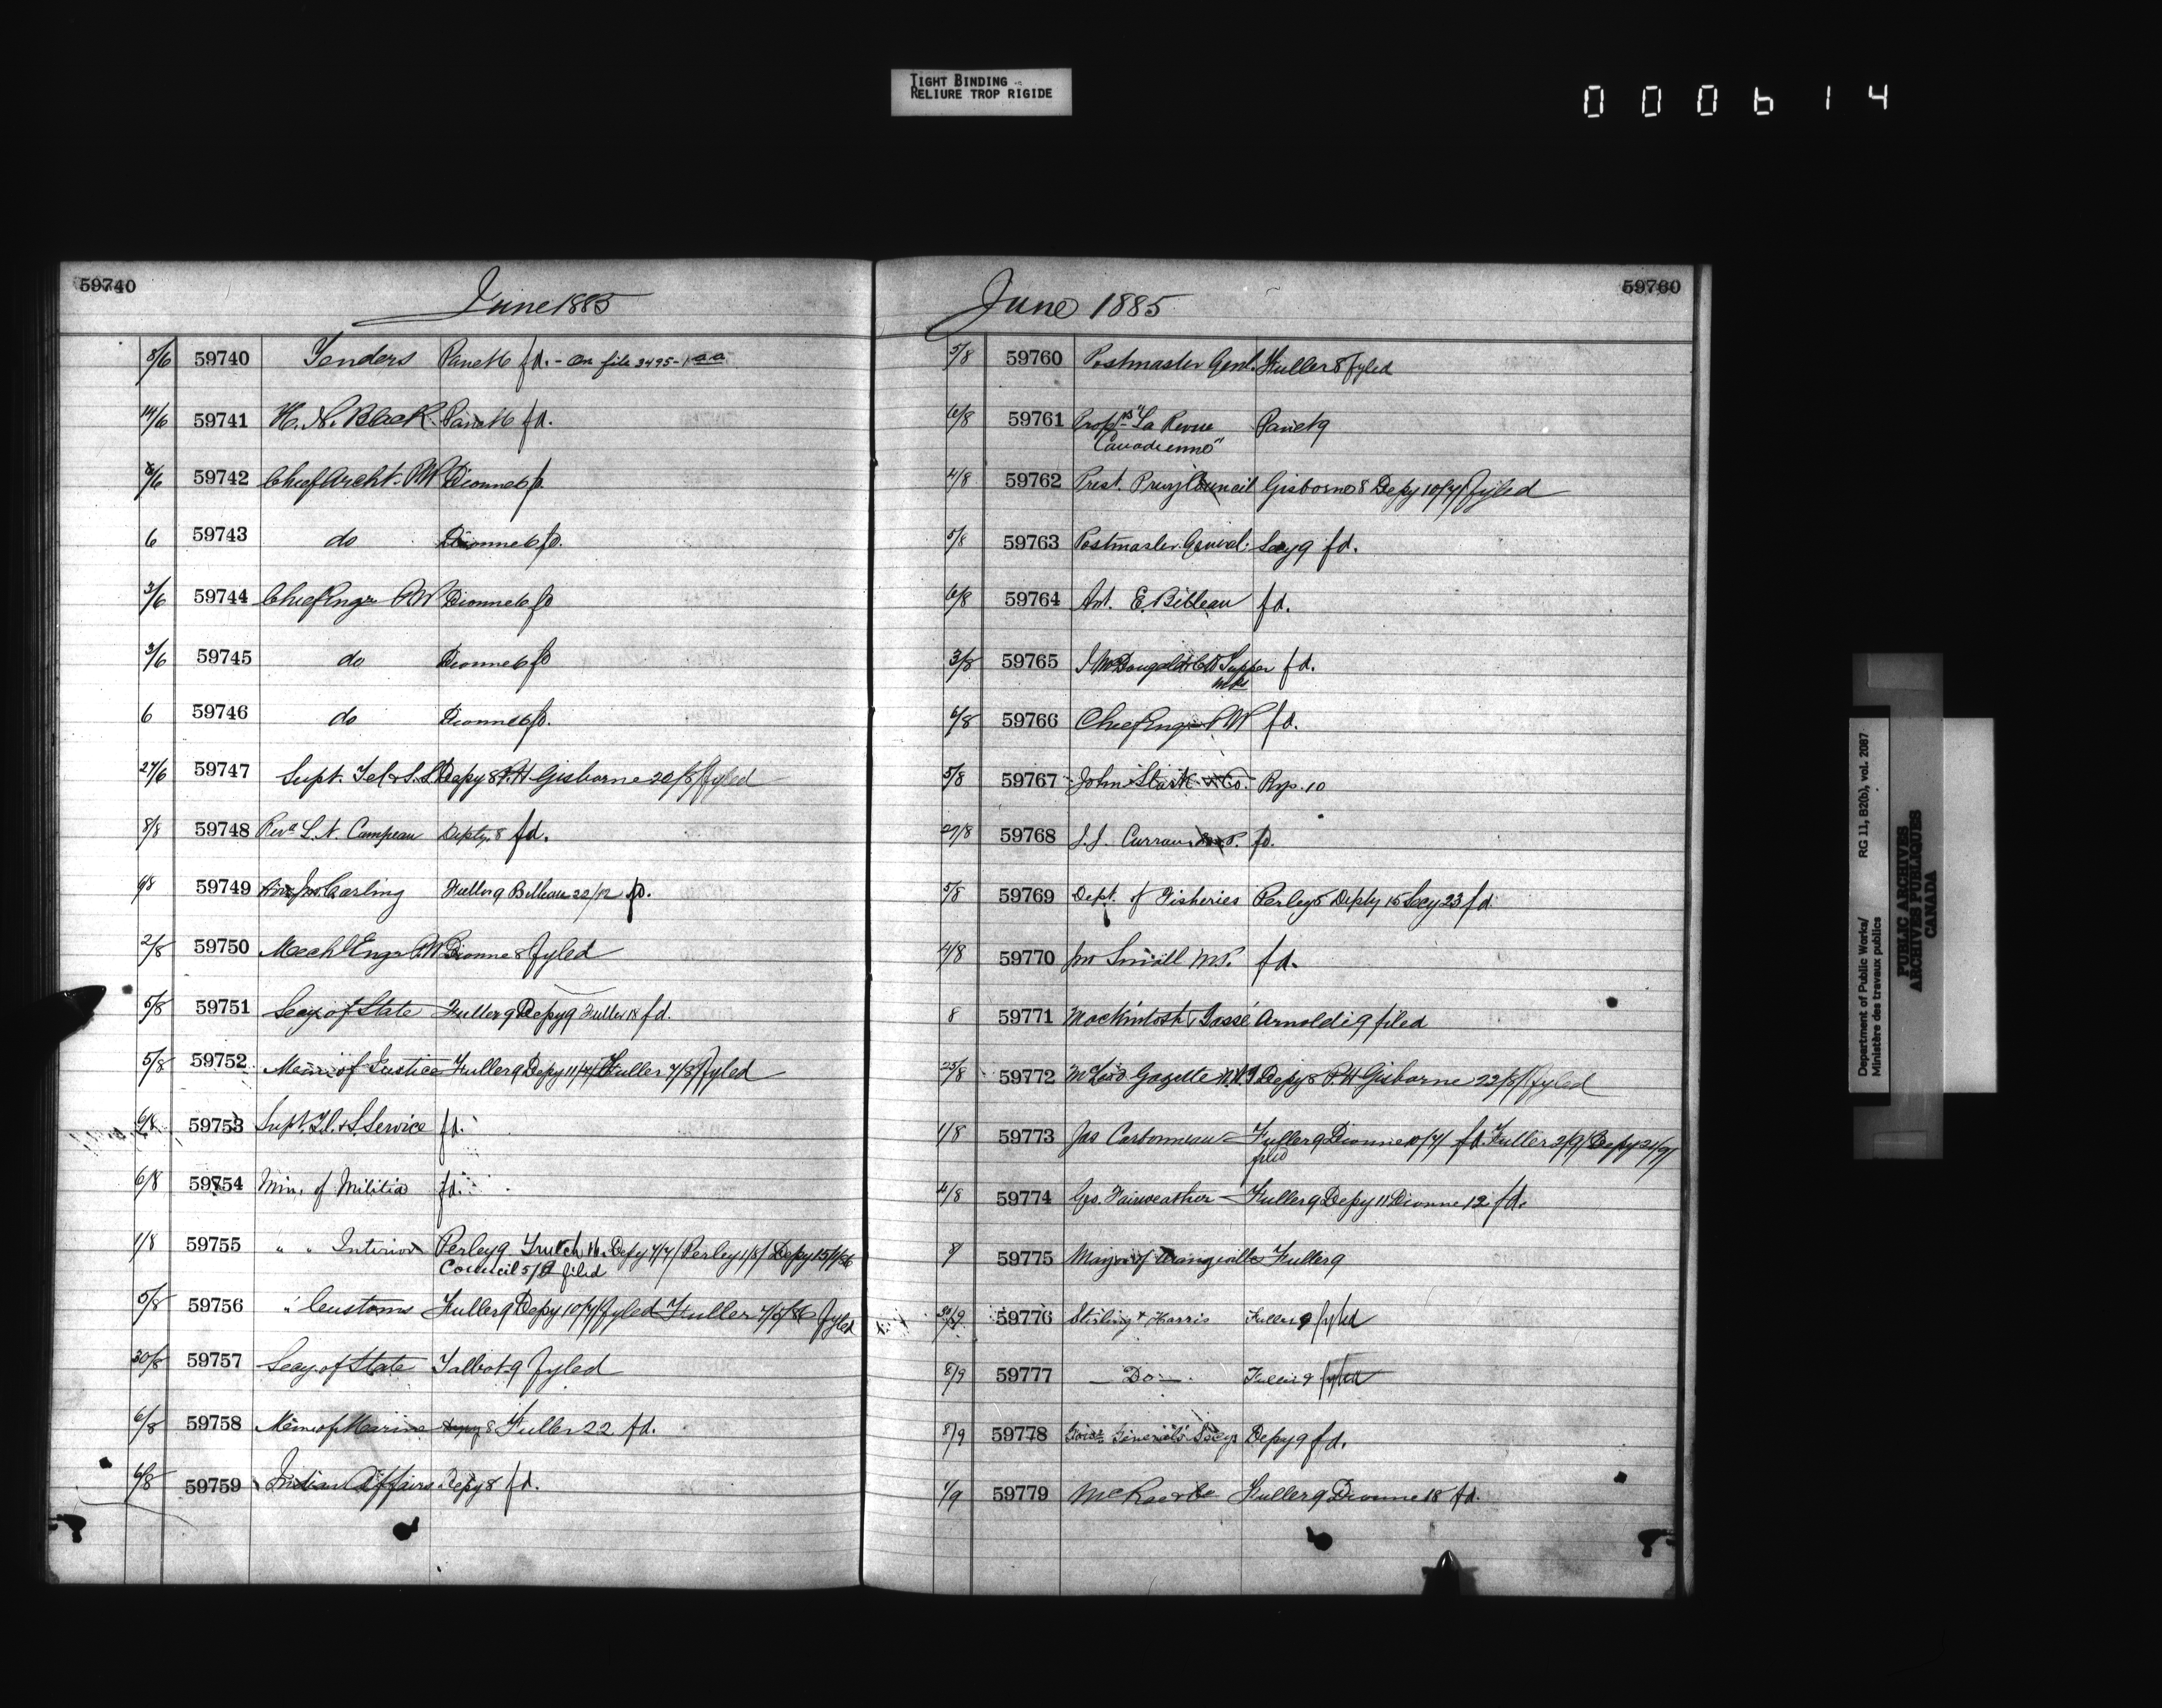 TIGHT BINDING
RELIURE TROP RIGIDE
000614
59740
June 1885
5/6 59740 Tenders Panet 6 fd. - On file 3495-1
14/6 59741 H. N. Black Panet 6 fd.
6/6 59742 Chief Archt. P.W Dionne 6 fd.
6 59743 do Dionne 6 fd.
3/6 59744 Chief Engr P.W Dionne 6 fd
3/6 59745 do Dionne 6 fd
6 59746 do Dionne 6 fd.
27/6 59747 Supt. Tel & S.S Depy 8 F.H Gisborne 20/8/ fyled
8/8 59748 Revd L. N. Campeau Depty. 8 fd.
6/8 59749 Jno. Carling Fuller 9 Billeau 22/12 fd.
2/8 59750 Mechl Engr P.W Dionne 8 fyled
5/8 59751 Secy of State Fuller 9 Depy 9 Fuller 18 fd.
5/8 59752 Min of Justice Fuller 9 Depy 11/7/ Fuller 7/8/ fyled
6/8 59753 Supt. T. & S. Service fd.
6/8 59754 Min. of Militia fd.
1/8 59755 " " Interior Perley 9 Trutch 16 Depy 7/7/ Perley 1/8/ Depy 15/1/86
Council 5/2 filed
5/8 59756 " Customs Fuller 9 Depy 10/7/ fyled Fuller 7/5/86 fyled
30/8 59757 Secy. of State Talbot 9 fyled
6/8 59758 Min of Marine Depy 8 Fuller 22 fd.
6/8 59759 Indian Affairs Depy 8 fd.
59760
June 1885
5/8 59760 Postmaster Genl. Fuller 8 fyled
6/8 59761 Proprs "La Revue Panet 9
Canadienne"
4/8 59762 Prest. Privy Council Gisborne 8 Depy 10/7/ fyled
5/8 59763 Postmaster General Secy 9 fd.
6/8 59764 Ant. E. Bibleau fd.
3/8 59765 McDougald & C H Tupper fd.
MPs
6/8 59766 Chief Engr P W fd.
5/8 59767 John Stark & Co. Rys. 10
27/8 59768 J. J. Curran M.P. fd.
5/8 59769 Dept. of Fisheries Perley 5 Depty 15 Secy 23 fd
4/8 59770 Jno Small M.P. fd.
8 59771 Mackintosh & Tassé Arnoldi 9 filed
25/8 59772 McLeod Gazette N.W.T Depy 8 F H Gisborne 22/8/ fyled
1/8 59773 Jas Carbonneau Fuller 9 Dionne 10/7/ fd. Fuller 2/9/ Depy 21/9/
filed
4/8 59774 Geo. Fairweather Fuller 9 Depy 11 Dionne 12 fd.
8/ 59775 Mayor of Orangeville Fuller 9
59776 Stirling & Harris Fuller 9 fyled
8/9 59777 — Do — Fuller 9 fyled
8/9 59778 Govr. General's Secy Depy 9 fd.
1/9 59779 McRae & Co Fuller 9 Dionne 18 fd.
Department of Public Works/ RG 11, B2(b), vol. 2087
Ministère des travaux publics
PUBLIC ARCHIVES
ARCHIVES PUBLIQUES
CANADA